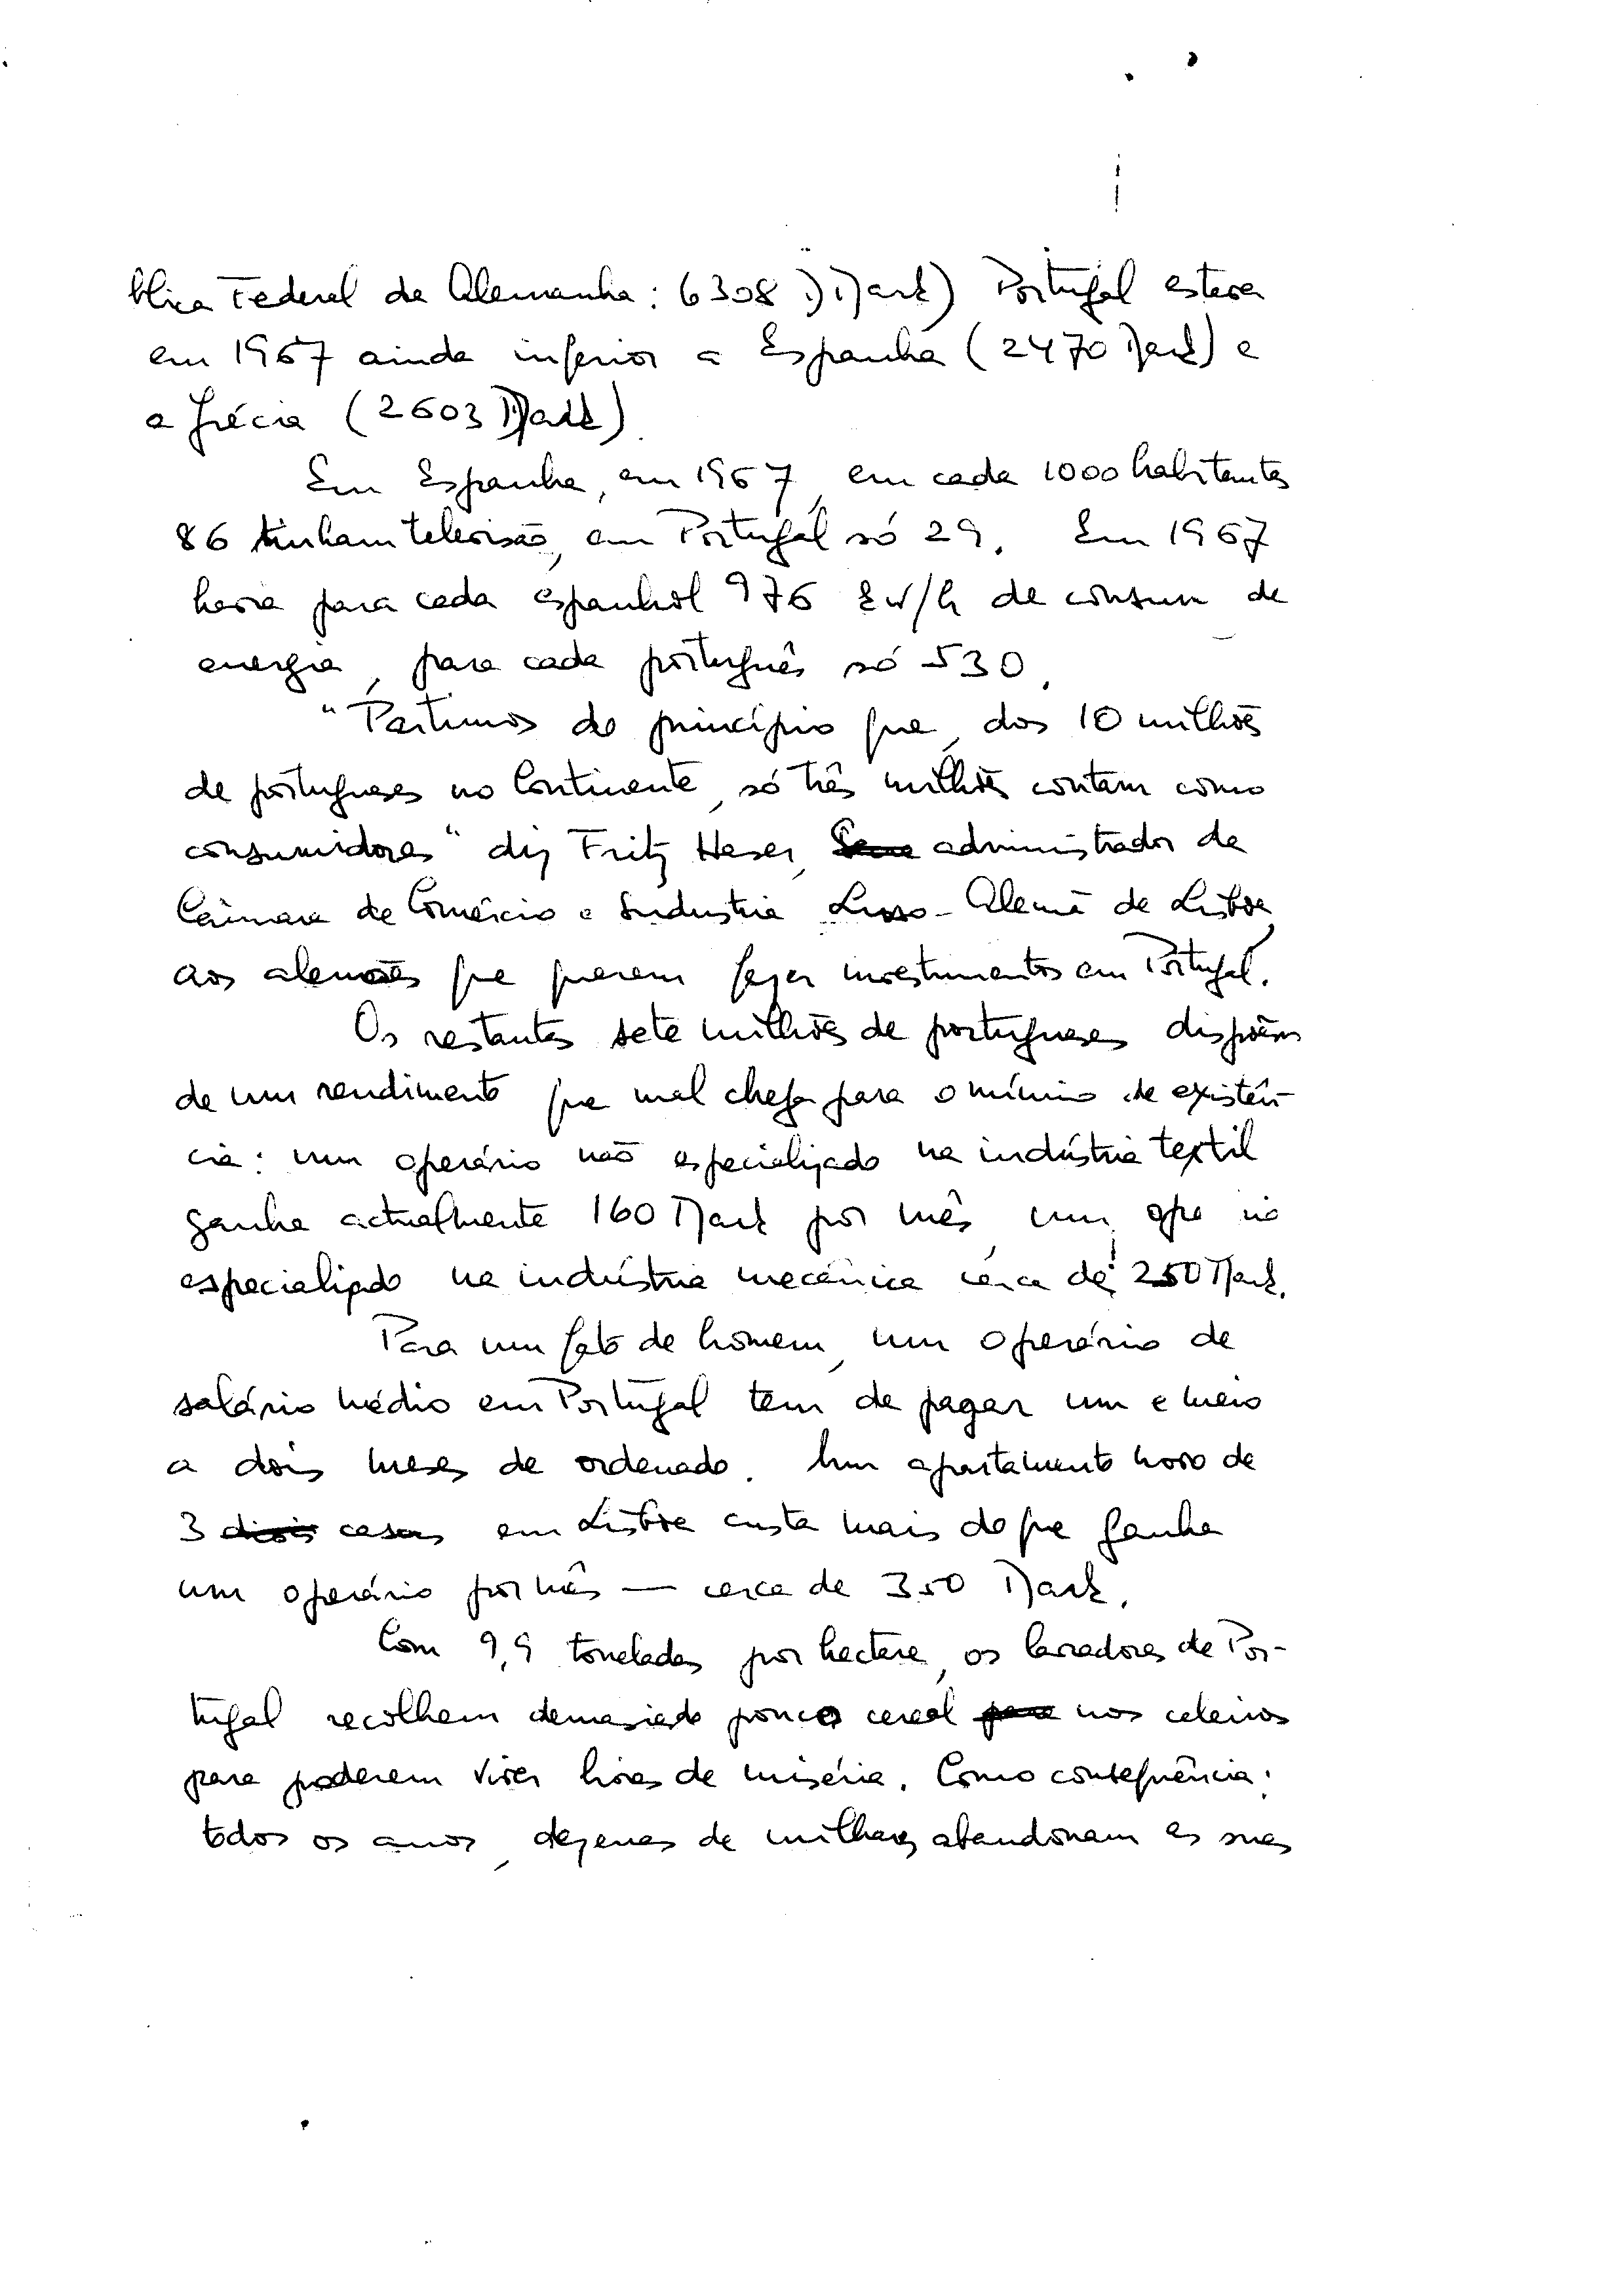 blica Federal da Alemanha: 6308 Mark) Portugal estava
em 1967 ainda inferior a Espanha (2470 Mark) e
a Grécia (2603 Mark).
Em Espanha, em 1967, em cada 1000 habitantes
86 tinham televisão, em Portugal só 29. Em 1967
havia para cada espanhol 976 kw/h de consumo de
energia, para cada português só 530.
"Partimos do princípio que, dos 10 milhões
de portugueses no Continente, só três milhões contam como
consumidores" diz Fritz Heser, administrador da
Câmara de Comércio e Industria Luso-Alemã de Lisboa
aos alemães que querem fazer investimentos em Portugal.
Os restantes sete milhões de portugueses dispõem
de um rendimento que mal chega para o mínimo de existên-
cia: um operário não especializado na indústria textil
ganha actualmente 160 Mark por mês, um
especializado na indústria mecânica cerca de 250 Mark.
Para um fato de homem, um operário de
salário médio em Portugal tem de pagar um e meio
a dois meses de ordenado. Um apartamento novo de
3 casas em Lisboa custa mais do que ganha
um operário por mês — cerca de 350 Mark.
Com 9,9 toneladas por hectare, os lavradores de Por-
tugal recolhem demasiado pouco cereal nos celeiros
para poderem viver livres de miséria. Como consequência:
todos os anos, dezenas de milhares abandonam as suas